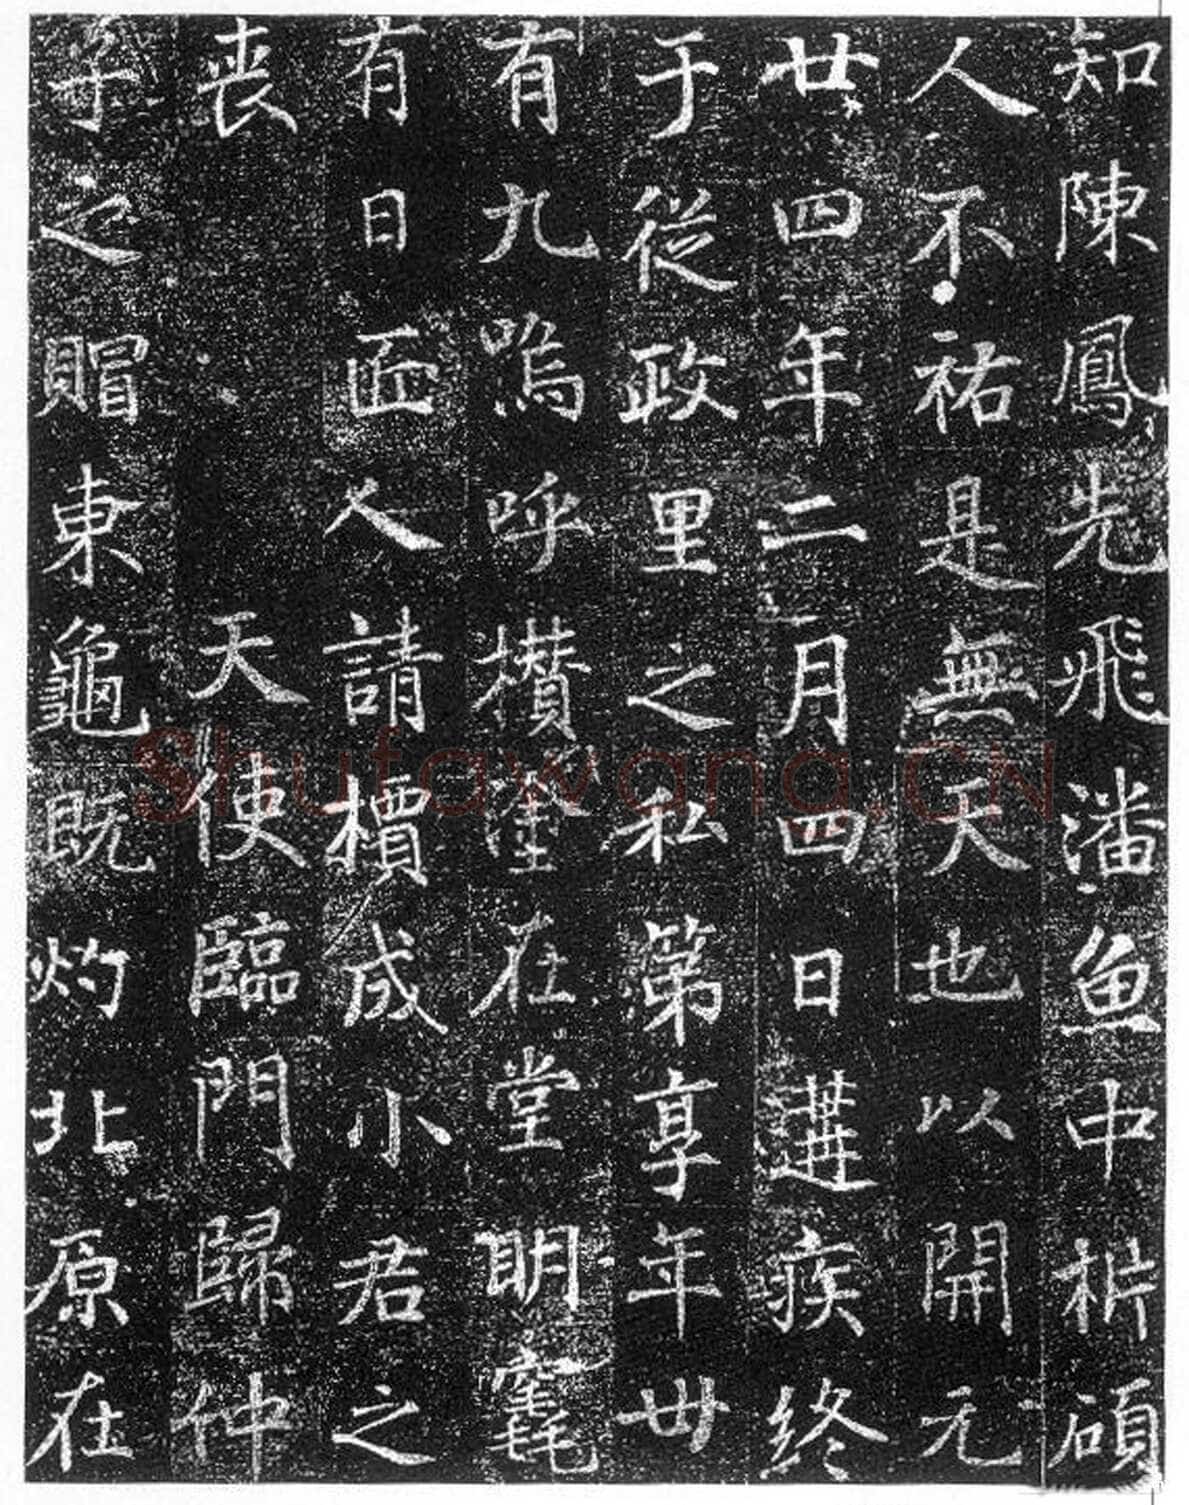 知陳鳳先飛潘魚中析碩
人不祐是無天也以開元
廿四年二月四日遘疾終
于從政里之私第享年卅
有九嗚呼攢塗在堂明毫
有日匠人請檟成小君之
丧天使臨門歸仲
子之賵東龜既灼北原在
Shufawang.CN